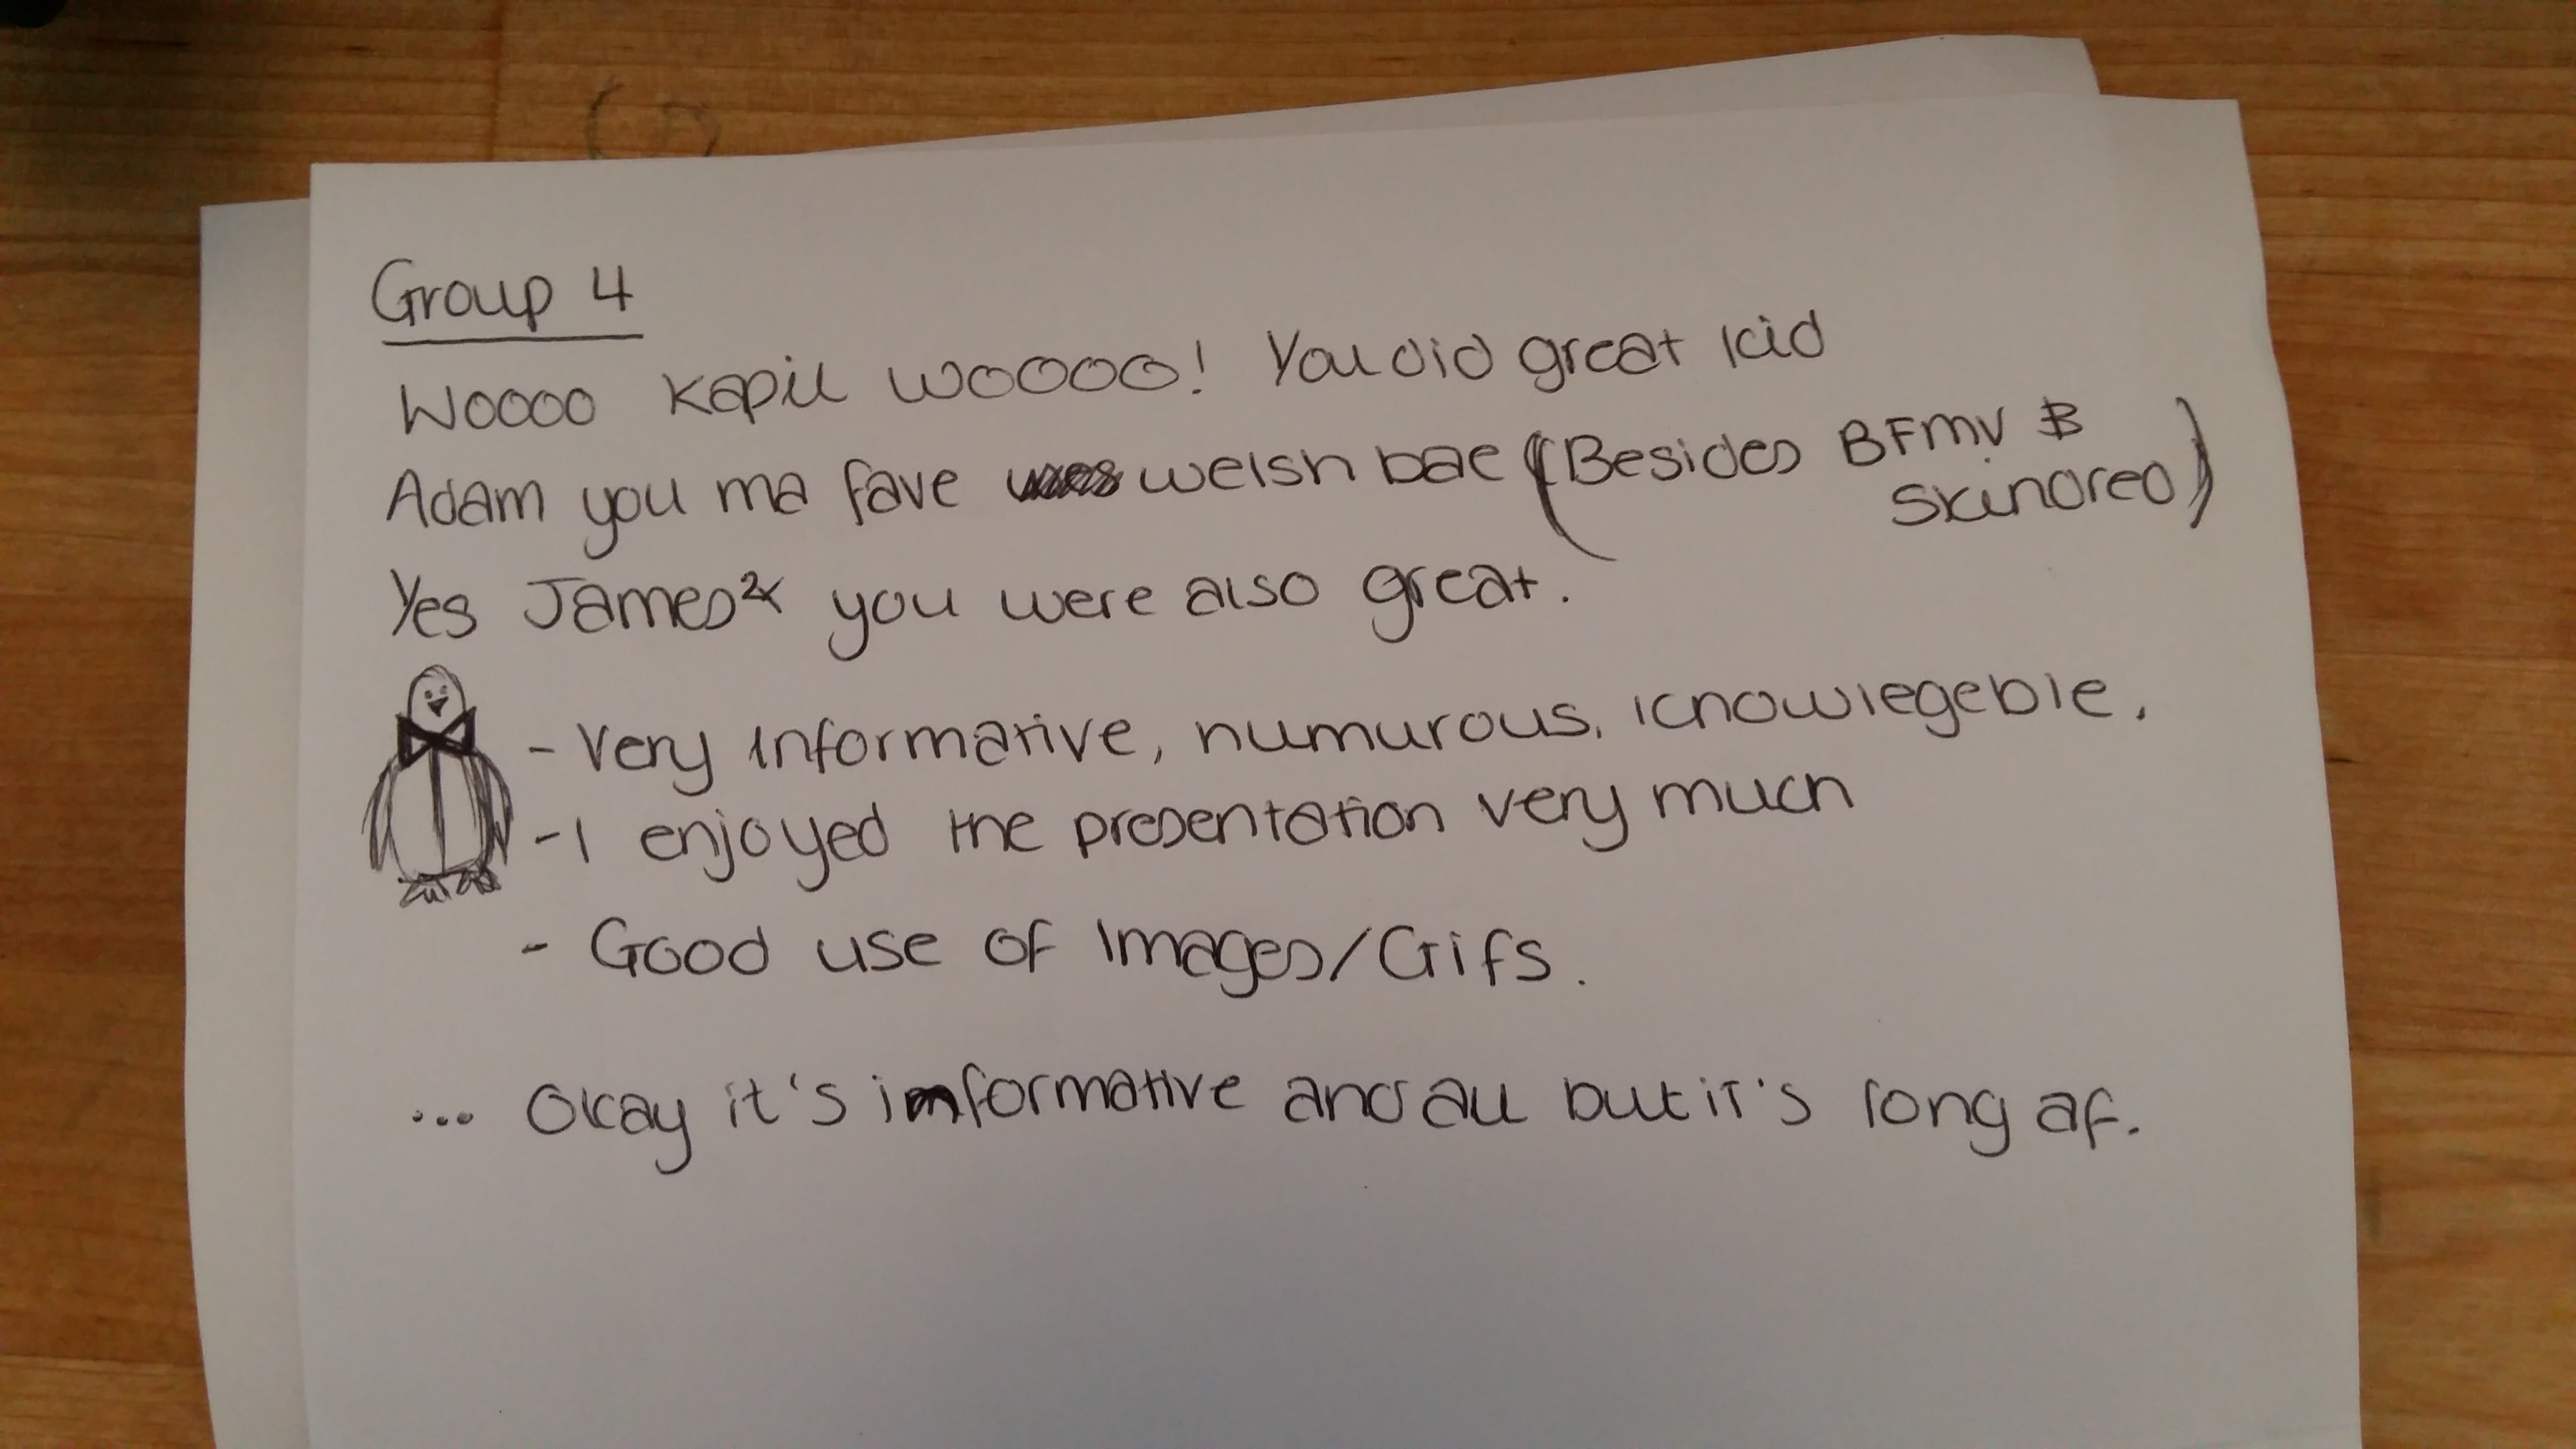 Group 4
Woooo Kapil woooo! You did great kid
Adam you ma fave welsh bae (Besides BFMV &
skindred)
Yes James you were also great.
- Very informative, numurous, knowlegeble.
- I enjoyed the presentation very much
- Good use of Images/Gifs.
... Okay it's informative and all but it's long af.